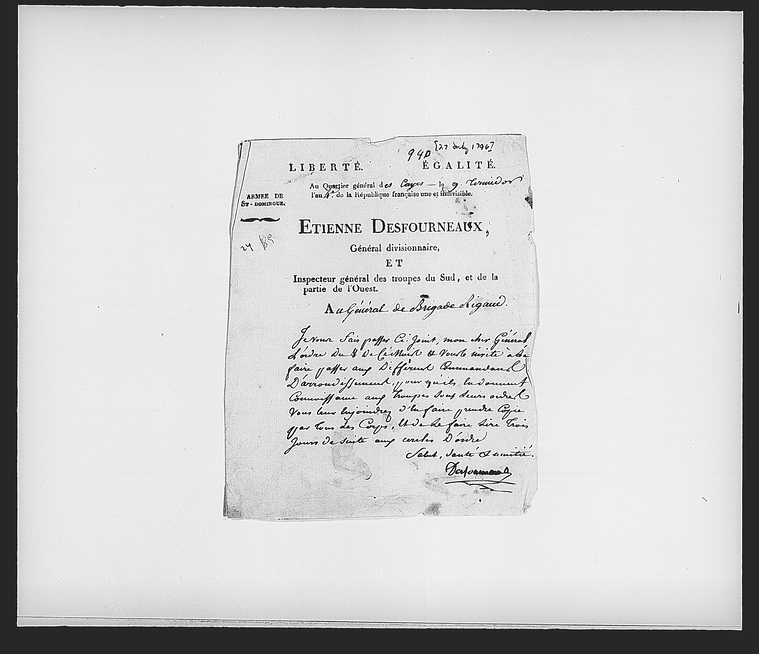 940 [27 July 1796]
LIBERTÉ. ÉGALITÉ.
Au Quartier général des Cayes — le 9. Termidor
l'an 4e. de la République française une et indivisible.
ARMÉE DE
ST-DOMINGUE.
ETIENNE DESFOURNEAUX,
Général divisionnaire,
ET
Inspecteur général des troupes du Sud, et de la
partie de l'Ouest.
Au Général de Brigade Rigaud.
Je vous fais passer Ci-Joint, mon cher Général
L'ordre Du 8 De Ce Mois & vous invite à le
faire passer aux Différent Commandans
D'arrondissement, pour qu'ils en donnent
Connoissance aux troupes sous leurs ordres
Vous leur enjoindrez d'en faire prendre Copie
par tous les Corps, et de le faire lire trois
Jours de suite aux cercles D'ordre
Salut, santé & amitié.
Desfourneaux